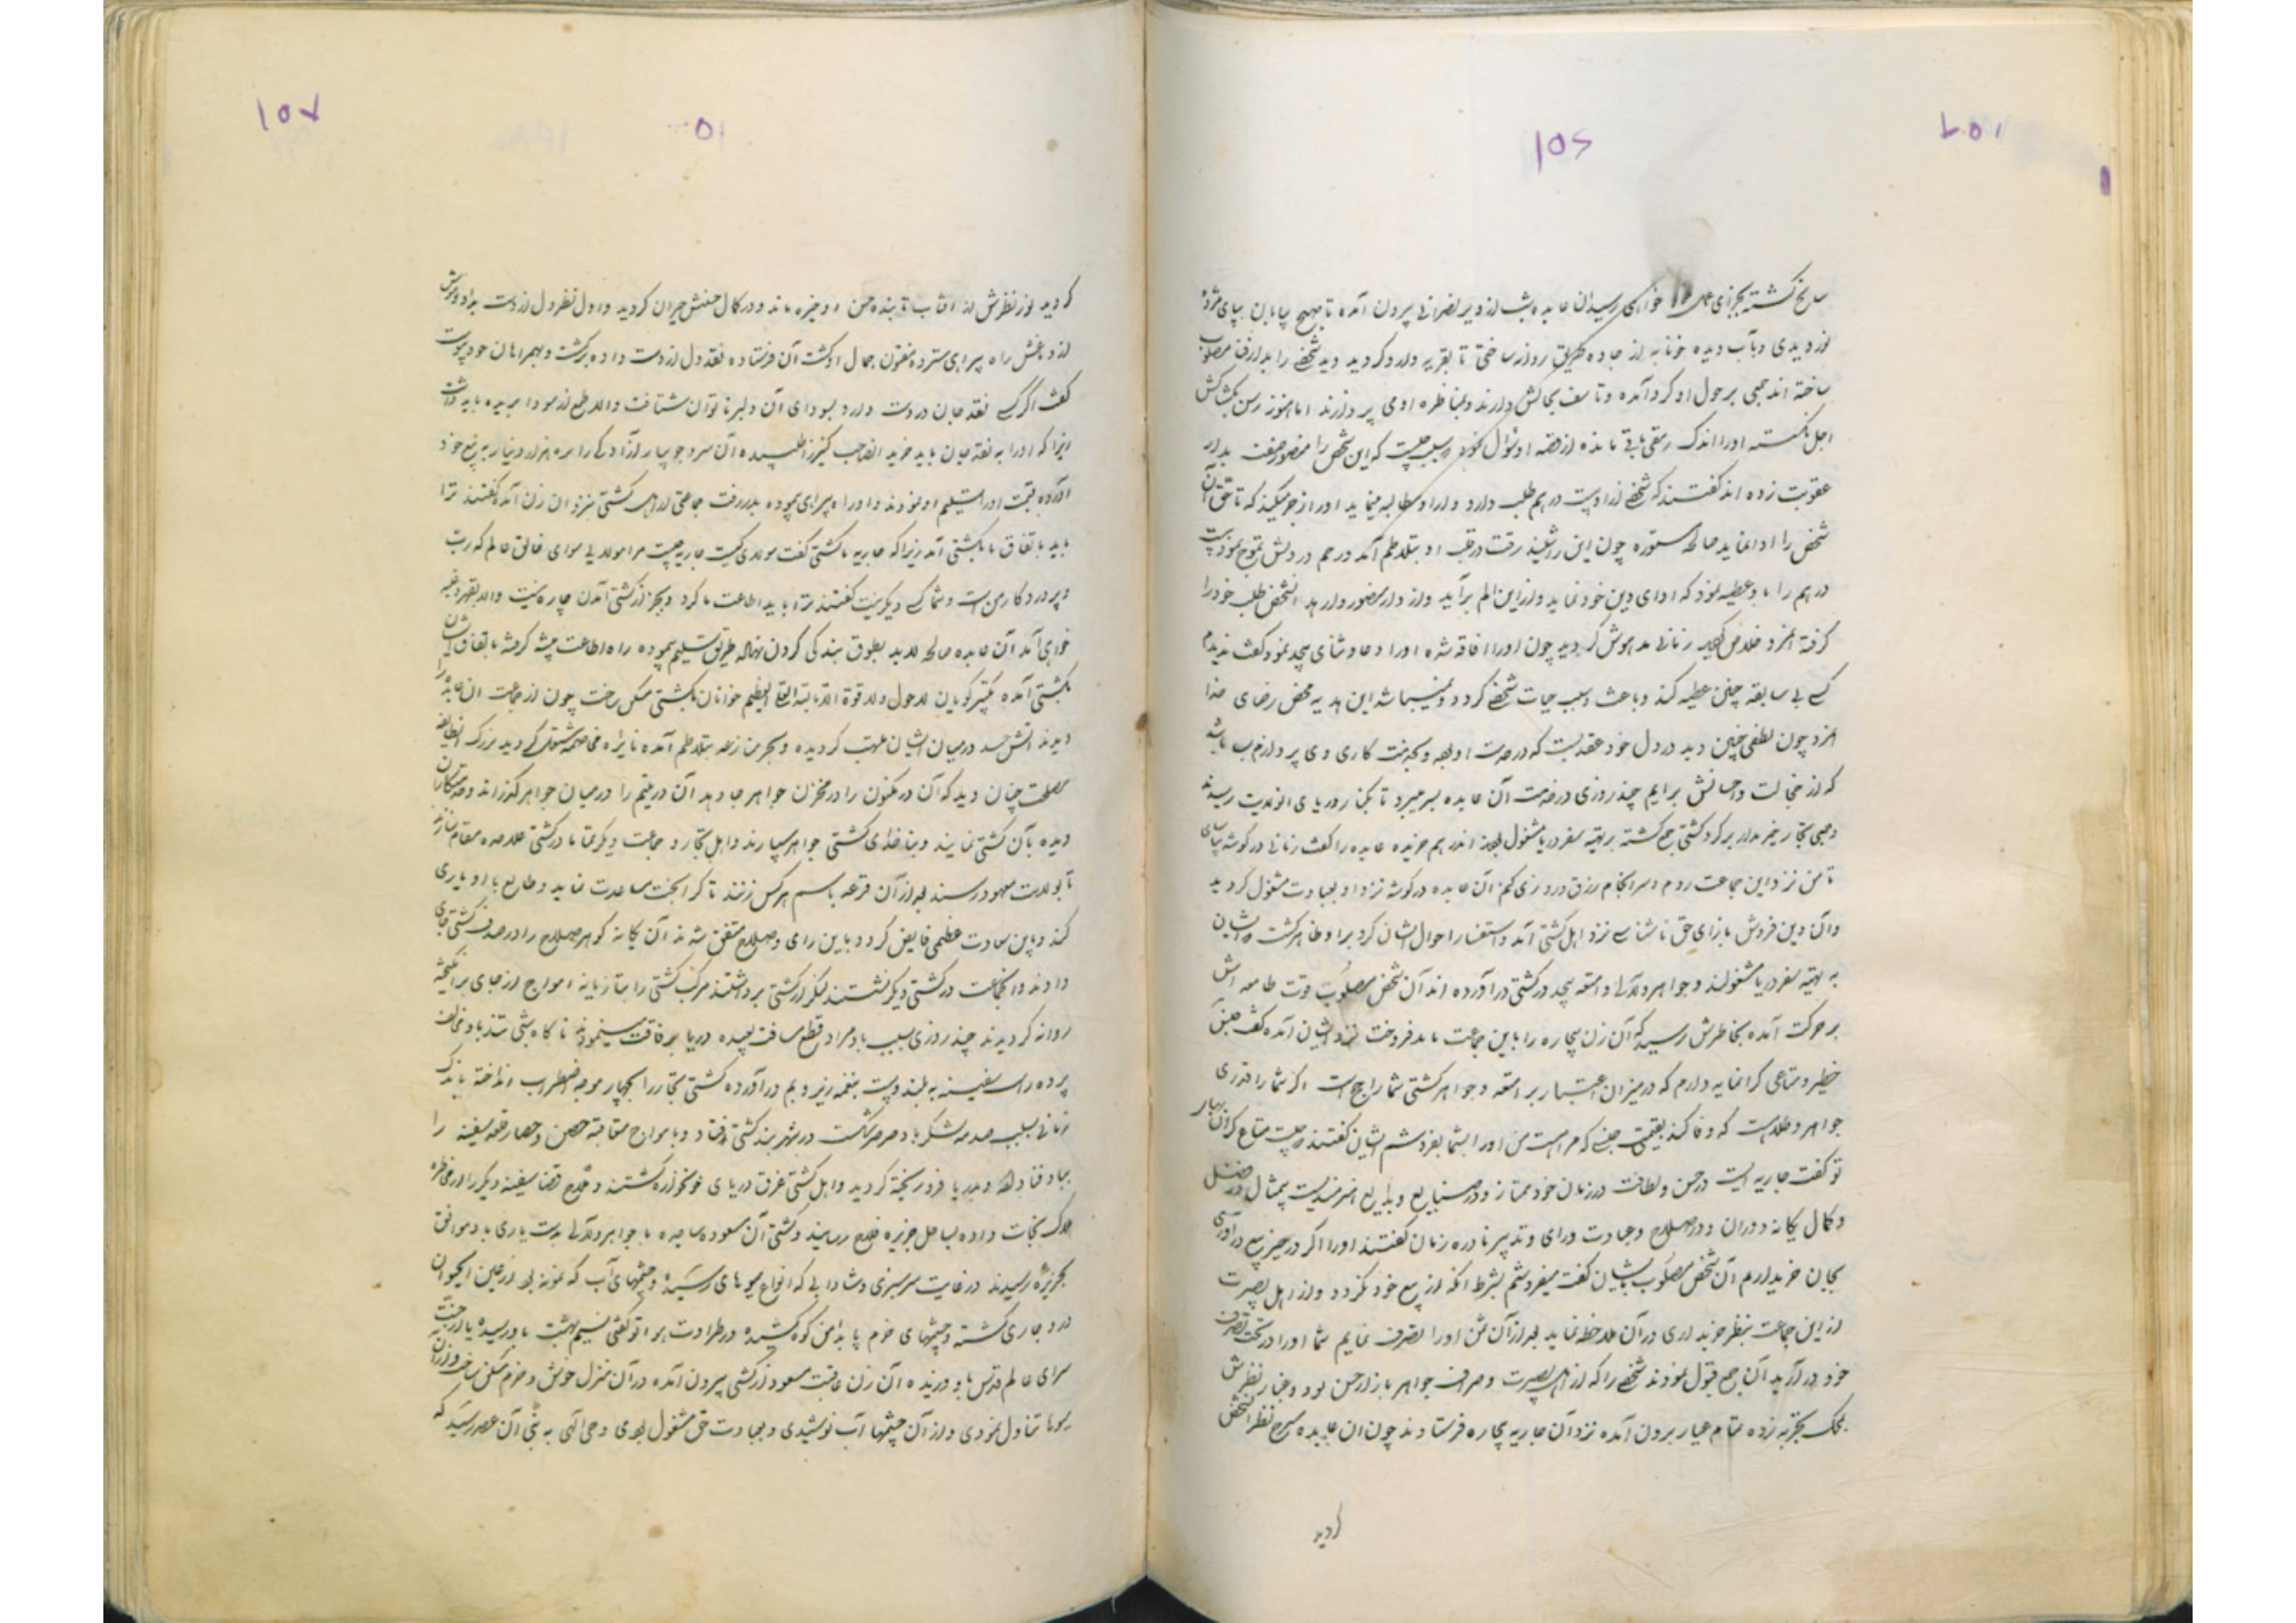 سانح گشته بجزای عمل خواهی رسیدن عابده شب از دیر نصرانی بیرون آمده تا صبح بیابان بپای مژده
نوردیدی و بآب دیده خونابه از جاده طریق روانه ساختی تا بقریه وارد گردید دید شخصی را بدار فنا مصلوب
ساخته اند جمعی بر حول او گرد آمده و تاسف بحالش دارند و بمناظره او می پردازند اما هنوز رسن بکشاکش
اجل نگسسته او را اندک رمقی باقی مانده از قصه او سؤال نمود سبب چیست که این شخص را منصور صفت بدار
عقوبت زده اند گفتند که شخصی از او بیست درهم طلب دارد و از او مطالبه مینماید او را زجر میکند که تا حق آن
شخص را ادا نماید صالحه مستوره چون این را شنید رقت در قلب او بتلاطم آمد و رحم در دلش بتموج نمود بیست
درهم را باو عطیه نمود که ادای دین خود نماید و از این الم برآید و از دار منصور وارهد آنشخص طلب خود را
گرفته آنمرد خلاص گردید زمانی مدهوش گردید چون او را افاقه شد او را دعا و ثنای بیحد نمود گفت ندیدم
کسی بی سابقه چنین عطیه کند و باعث و سبب حیات شخصی گردد و نمیباشد این مدیه محض رضای خدا
آنمرد چون لطفی چنین دید در دل خود عقد بست که در خدمت او بود و بخدمت کاری وی پردازم باشد
که از خجالت و احسانش برایم چند روزی در خدمت آن عابده بسر میبرد تا بکنار دریای آنولایت رسیدند
و جمعی تجار خیر مدار بر گرد کشتی جمع گشته بر تهیه سفر دریا مشغول بودند آندرهم خریده عابده را گفت زمانی در گوشه بپای
تا من نزد این جماعت روم و سرانجام رزق و روزی کنم آن عابده در گوشه نزد او بعبادت مشغول گردید
و آن دین فروش بازای حق ناشناسی نزد اهل کشتی آمد و استفسار احوال ایشان کرد بر او ظاهر گشت که ایشان
به تهیه سفر دریا مشغولند و جواهر و لآلی و امتعه بیحد در کشتی درآورده اند آن شخص مصلوب قوت طامعه اش
بر حرکت آمده بخاطرش رسید که آن زن بیچاره را باین جماعت باید فروخت نزد ایشان آمده گفت جنس
خطیر و متاعی گرانمایه دارم که در میزان اعتبار بر امتعه و جواهر کشتی شما راجح است اگر شما را قدری
جواهر و طلاست که وفا کند بقیمت جنسی که مراست من او را بشما بفروشم ایشان گفتند چیست متاع گران بهای
تو گفت جاریه ایست در حسن و لطافت در زمان خود ممتاز و در صنایع و بدایع هنرمندیست بیمثال در فضل
و کمال یگانه دوران و در صلاح و عبادت و رای و تدبیر نادره زمان گفتند او را اگر در حیز بیع درآوری
بجان خریداریم آن شخص مصلوب بایشان گفت میفروشم بشرط آنکه از بیع خود نگردد و از اهل بصیرت
از این جماعت بنظر خریداری در آن ملاحظه نماید بعد از آن ثمن او را تصرف نمایم شما او را در تحت تصرف
خود درآرید آن جمع قبول نمودند شخصی را که از اهل بصیرت و صراف جواهر بازار حسن بود و عیار نظرش
بمحک تجربه زده تمام عیار برون آمده نزد آن جاریه بیچاره فرستادند چون آن عابده مطرح نظر آنشخص
گردید
گردید نور نظرش از آفتاب تابنده حسن او خیره ماند و در کمال حسنش حیران گردید و اول نظر دل از دست بداد و هوش
از دماغش راه بیراهی سپرده مفتون جمال او گشت آن فرستاده نقد دل از دست داده برگشت و بهمراهان خود پیوست
گفت اگر کسی نقد جان در دست دارد بسودای آن دلبر ناتوان شتافت و الا طمع از سودا بریده باید داشت
زیرا که او را به نقد جان باید خرید القصه صاحب کنیز را طلبیده آن سرو جویبار آزادگی را بده هزار دینار به بیع خود
آورده قیمت او را تسلیم او نمودند و او را ه بیراهی پیموده بدر رفت جماعتی از اهل کشتی نزد آن زن آمده گفتند ترا
باید باتفاق ما بکشتی آمد زیرا که جاریه ما گشتی گفت مولای کیست جاریه چیست مرا مولایی سوای خالق عالم که رب
و پروردگار من است و شما کسی دیگر نیست گفتند ترا باید اطاعت ما کرد و بجز از کشتی آمدن چاره نیست و الا بقهر و غلبه
خواهی آمد آن عابده صالحه لابد بطوق بندگی گردن نهاده طریق تسلیم پیموده راه اطاعت پیشه گرفته باتفاق ایشان
بکشتی آمده تکبیر گویان لاحول ولا قوة الا بالله العلی العظیم خوانان بکشتی مسکن ساخت چون از جماعت آن عابده را
دیدند آتش حسد در میان ایشان ملتهب گردیده و بحر منازعه بتلاطم آمده نایره مخاصمه مشتعل گردید بزرگ آنطایفه
مصلحت چنان دید که آن در مکنون را در مخزن جواهر جا دهد آن در یتیم را در میان جواهر گذراند و خدمتکاران
دیده بآن کشتی نمایند و بناخدای کشتی جواهر سپارند و اهل تجار و جماعت دیگر تماما در کشتی علاحده مقام سازند
تا بولایت معهود رسند بعد از آن قرعه باسم هر کس زنند تا کرا بخت مساعدت نماید و طالع با او یاری
کند و باین سعادت عظمی فایض گردد و باین رای و صلاح متفق شدند آن یگانه گوهر صلاح را در صدف کشتی جای
دادند و آنجماعت در کشتی دیگر نشستند لنگر از کشتی برداشتند مرکب کشتی را بتازیانه امواج از جای برانگیخته
روانه گردیدند چند روزی بسبب باد مراد قطع مسافت بعیده دریا برفاقت مینمودند تا گاه شبی تند باد مخالف
پرده را سفینه به بلند و پست بنغمه زیر و بم درآورده کشتی تجار را بچهار موجه اضطراب انداخته باندک
زمانی بسبب صدمه لشکر باد صرصر شکست در شهربند کشتی افتاد و با مواج مقابله حصن و حصار قلعه سفینه را
بباد فنا داد و بدریا فرو ریخته گردید و اهل کشتی غرق دریای خونخوار گشتند و ملاح قضا سفینه دیگر را از مخاطره
هلاک نجات داده بساحل جزیره فلاح رسانید و کشتی آن مسعوده ساجده با جواهر و لآلی بدست یاری باد موافق
بجزیره رسیدند در غایت سرسبزی و شادابی که انواع میوهای رسیده و چشمهای آب که نمونه بود از عین الحیوان
در و جاری گشته و چشمهای خرم پا بدامن کوه کشیده در طراوت هوا تو گفتی نسیم بهشت باو رسیده یا از جنت
سرای عالم قدس باو دمیده آن زن عاقبت مسعود از کشتی بیرون آمده در آن منزل خوش و خرم مسکن ساخت و از آن
میوها تناول نمودی و از آن چشمها آب نوشیدی و بعبادت حق مشغول بودی وحی الهی به نبی آن عصر رسید که